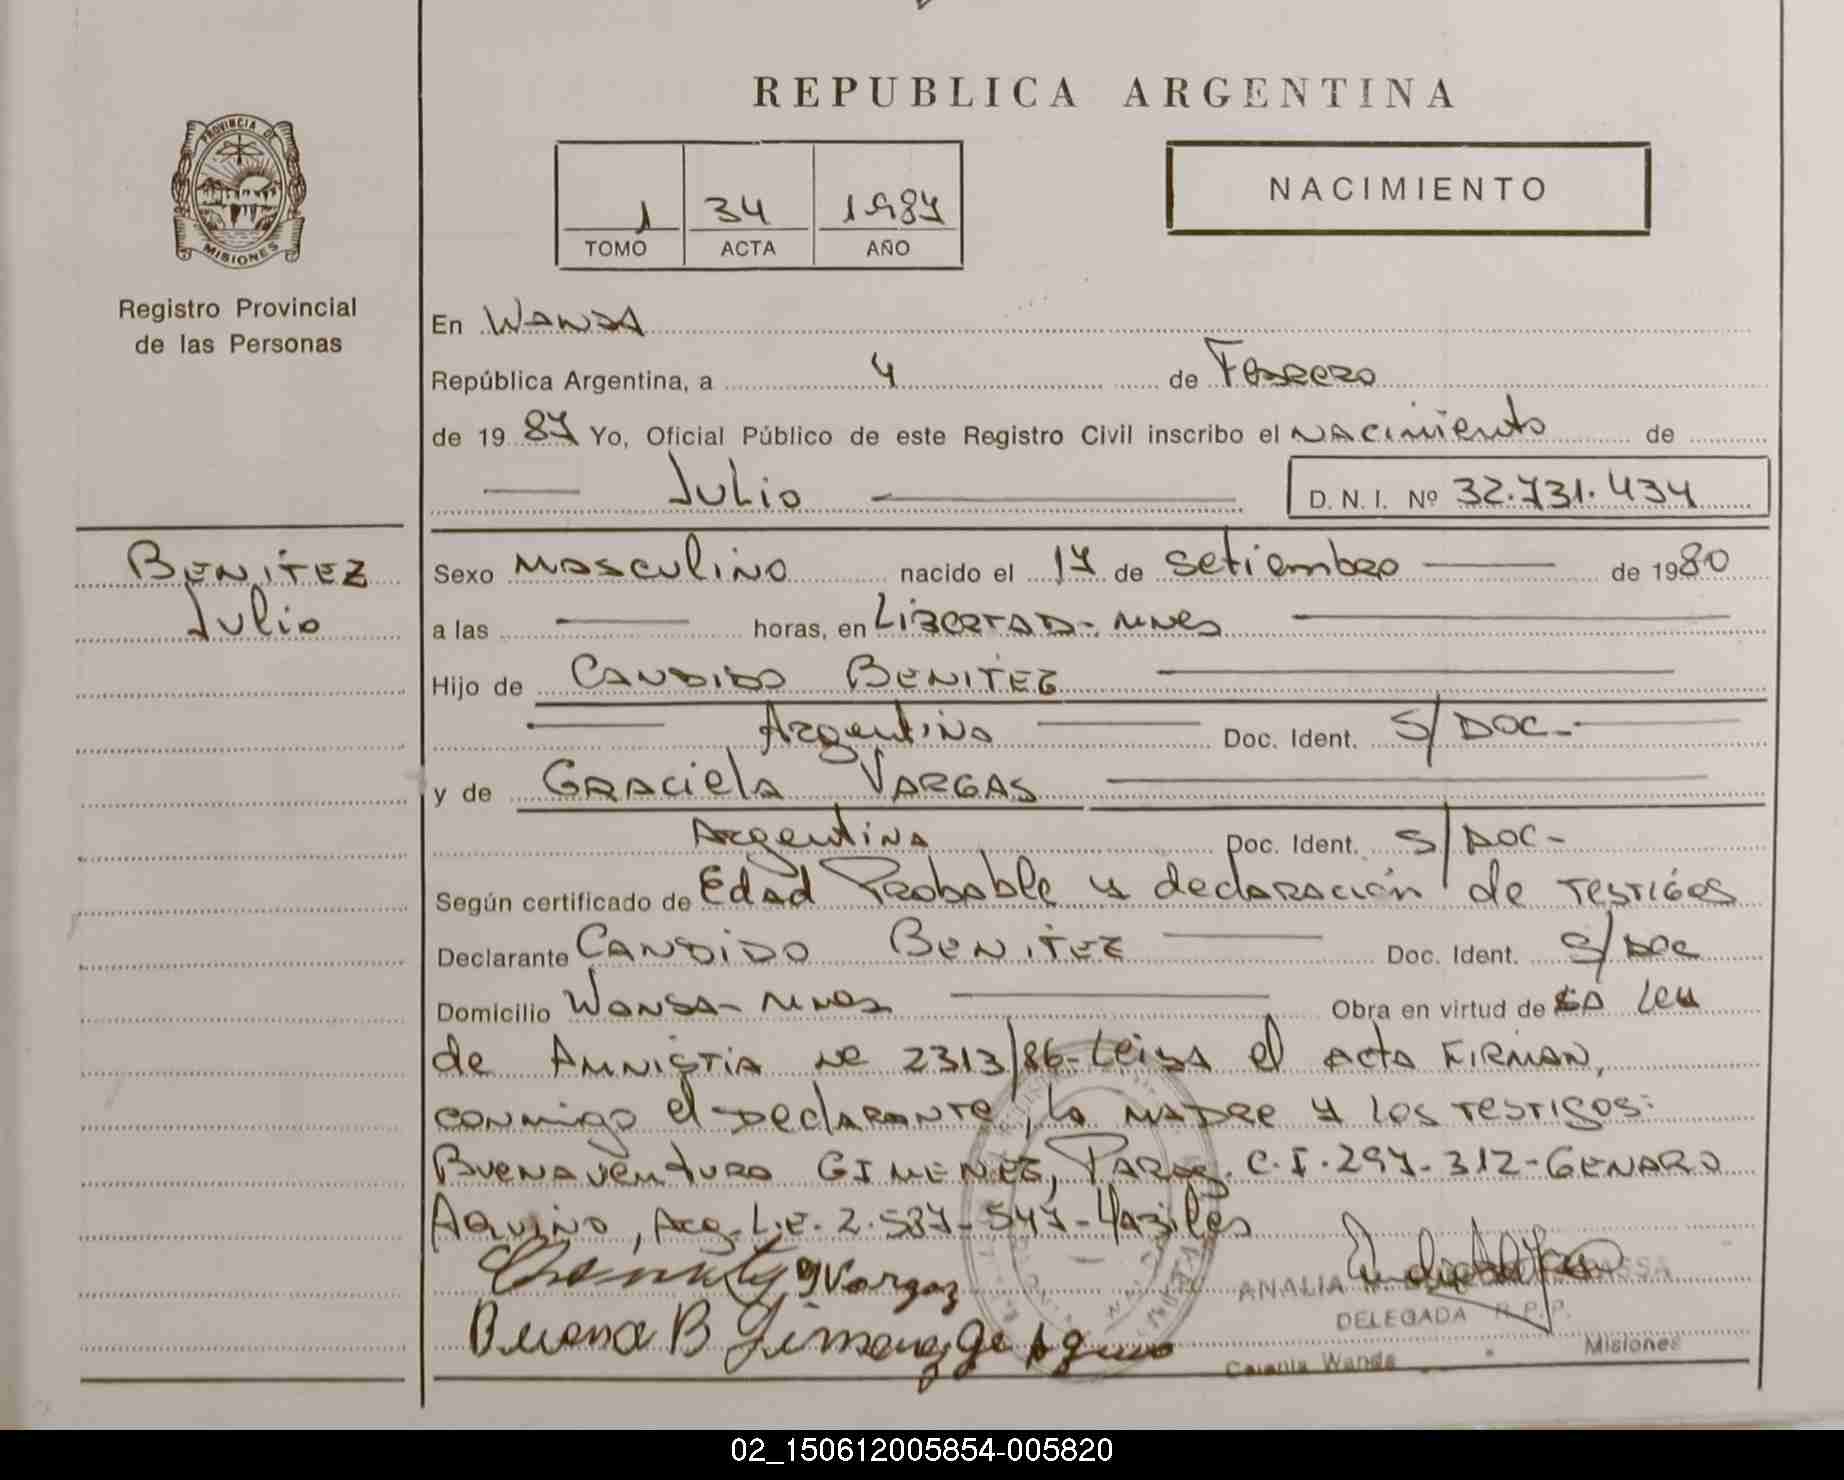 REPUBLICA ARGENTINA
PROVINCIA DE
MISIONES
Registro Provincial
de las Personas
1 34 1987
TOMO ACTA AÑO
NACIMIENTO
En WANDA
República Argentina, a 4 de Febrero
de 1987 Yo, Oficial Público de este Registro Civil inscribo el NACimiento de
Julio D. N. I. Nº 32.731.434
BENITEZ
Julio
Sexo MASculiNO nacido el 17 de Setiembre de 1980
a las horas, en LIBERTAD-MNES
Hijo de CANDIDO BENITEZ
ArgentiNo Doc. Ident. S/DOC-
y de GRACielA VARGAS
ArgentiNA Doc. Ident. S/DOC-
Según certificado de Edad Probable y declARACión de TESTIGOS
Declarante CANDIDO BENITEZ Doc. Ident. S/DOC
Domicilio WANDA-MNES Obra en virtud de LA Ley
de AMNISTIA Nº 2313/86-Leida el ActA FIRMAN,
conmigo el DeclARANTE, la MADRE y los TESTIGOS:
BuenAventura GIMENEZ, PARAG. C.I. 297.312-GENARO
AQUINO, Arg. L.E. 2.587-547-
g Vargaz
Buena B Jimenez Ge Aquino
ANALIA
DELEGADA R.P.P.
Colonia Wanda Misiones
02_150612005854-005820